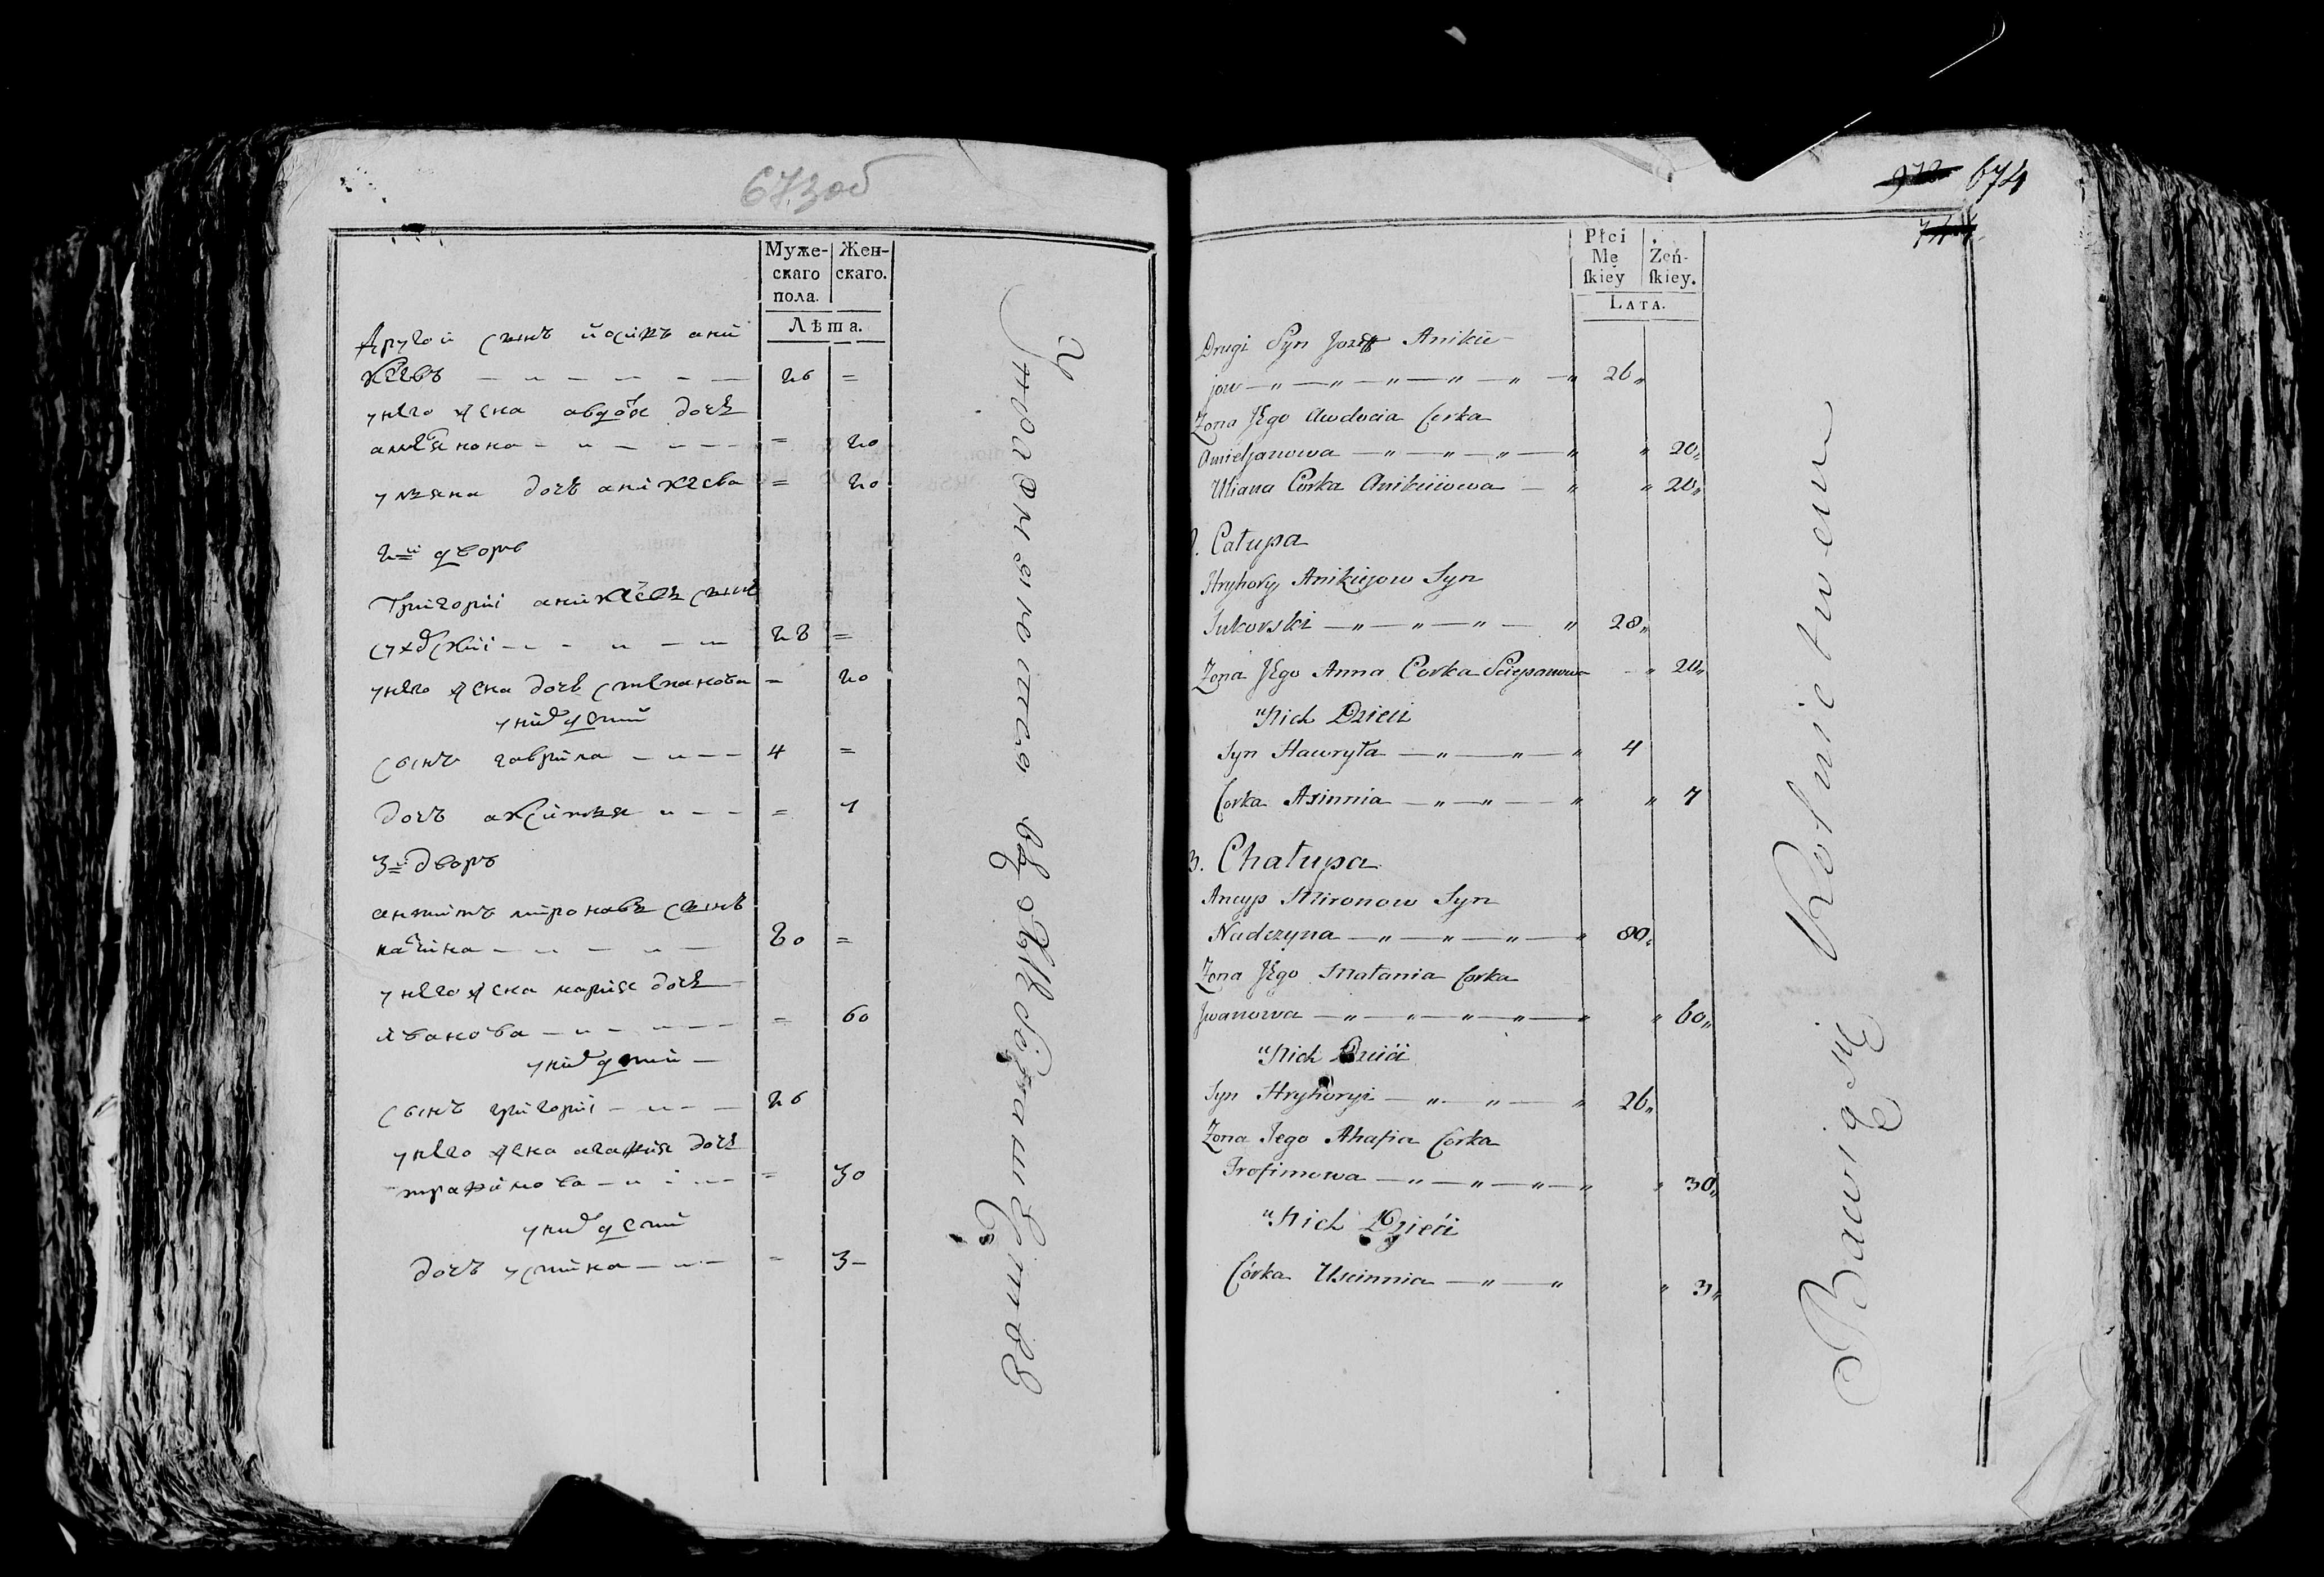 673 об
Муже-
скаго
пола.
Жен-
скаго.
Лѣта.
Другой сынъ иосифъ ани
кѣевъ — „ — „ — 26 =
унего жена авдотя дочь
амеляноно — „ — „ — = 20
уляна дочь аникѣева = 20
2й дворъ
Григории аникѣевъ сынъ
— „ — 28 =
унего жена дочь степанова = 20
унихъ дети
сынъ гаврила — „ — 4 =
дочь аксиния „ — = 7
3й дворъ
антипъ мироновъ сынъ
— „ — „ — 80 =
унего жена дочь
иванова — „ — = 60
унихъ дети —
сынъ григории — „ — 26
унего жена агафия дочь
трафимова — „ — = 30
унихъ дети
дочь устина — „ — = 3 —
Упражняются
674
Płci
Mę
ſkiey
Żeń-
ſkiey.
Lata.
Drugi Syn Jozeff Anikie-
jow — „ — „ — „ — „ — „ — „ 26„
Zona JEgo Awdocia Corka
Amieljanowa — „ — „ — „ — „ „ 20„
Uliana Corka Anikiiowa — „ „ 20„
Całupa
Hryhory Anikiejow Syn
Sukorski — „ — „ — „ — „ 28„
Zona JEgo Anna Corka Sciepanowa „ 20„
u Nich Dzieci
Syn Hawryła — „ — „ — „ 4
Corka Axinnia — „ — „ — „ „ 7
3. Chałupa
Ancyp Mironow Syn
Nadczyna — „ — „ — „ — „ 80„
Zona JEgo Małania Corka
Jwanowa — „ — „ — „ — „ — „ „ 60„
u Nich Dzieci
Syn Hryhoryi — „ — „ — „ 26„
Zona Jego Ahafia Corka
Trofimowa — „ — „ — „ — „ „ 30„
u Nich Dzieci
Córka Uscinnia — „ — „ „ 3„
Bawią się Rolnictwem